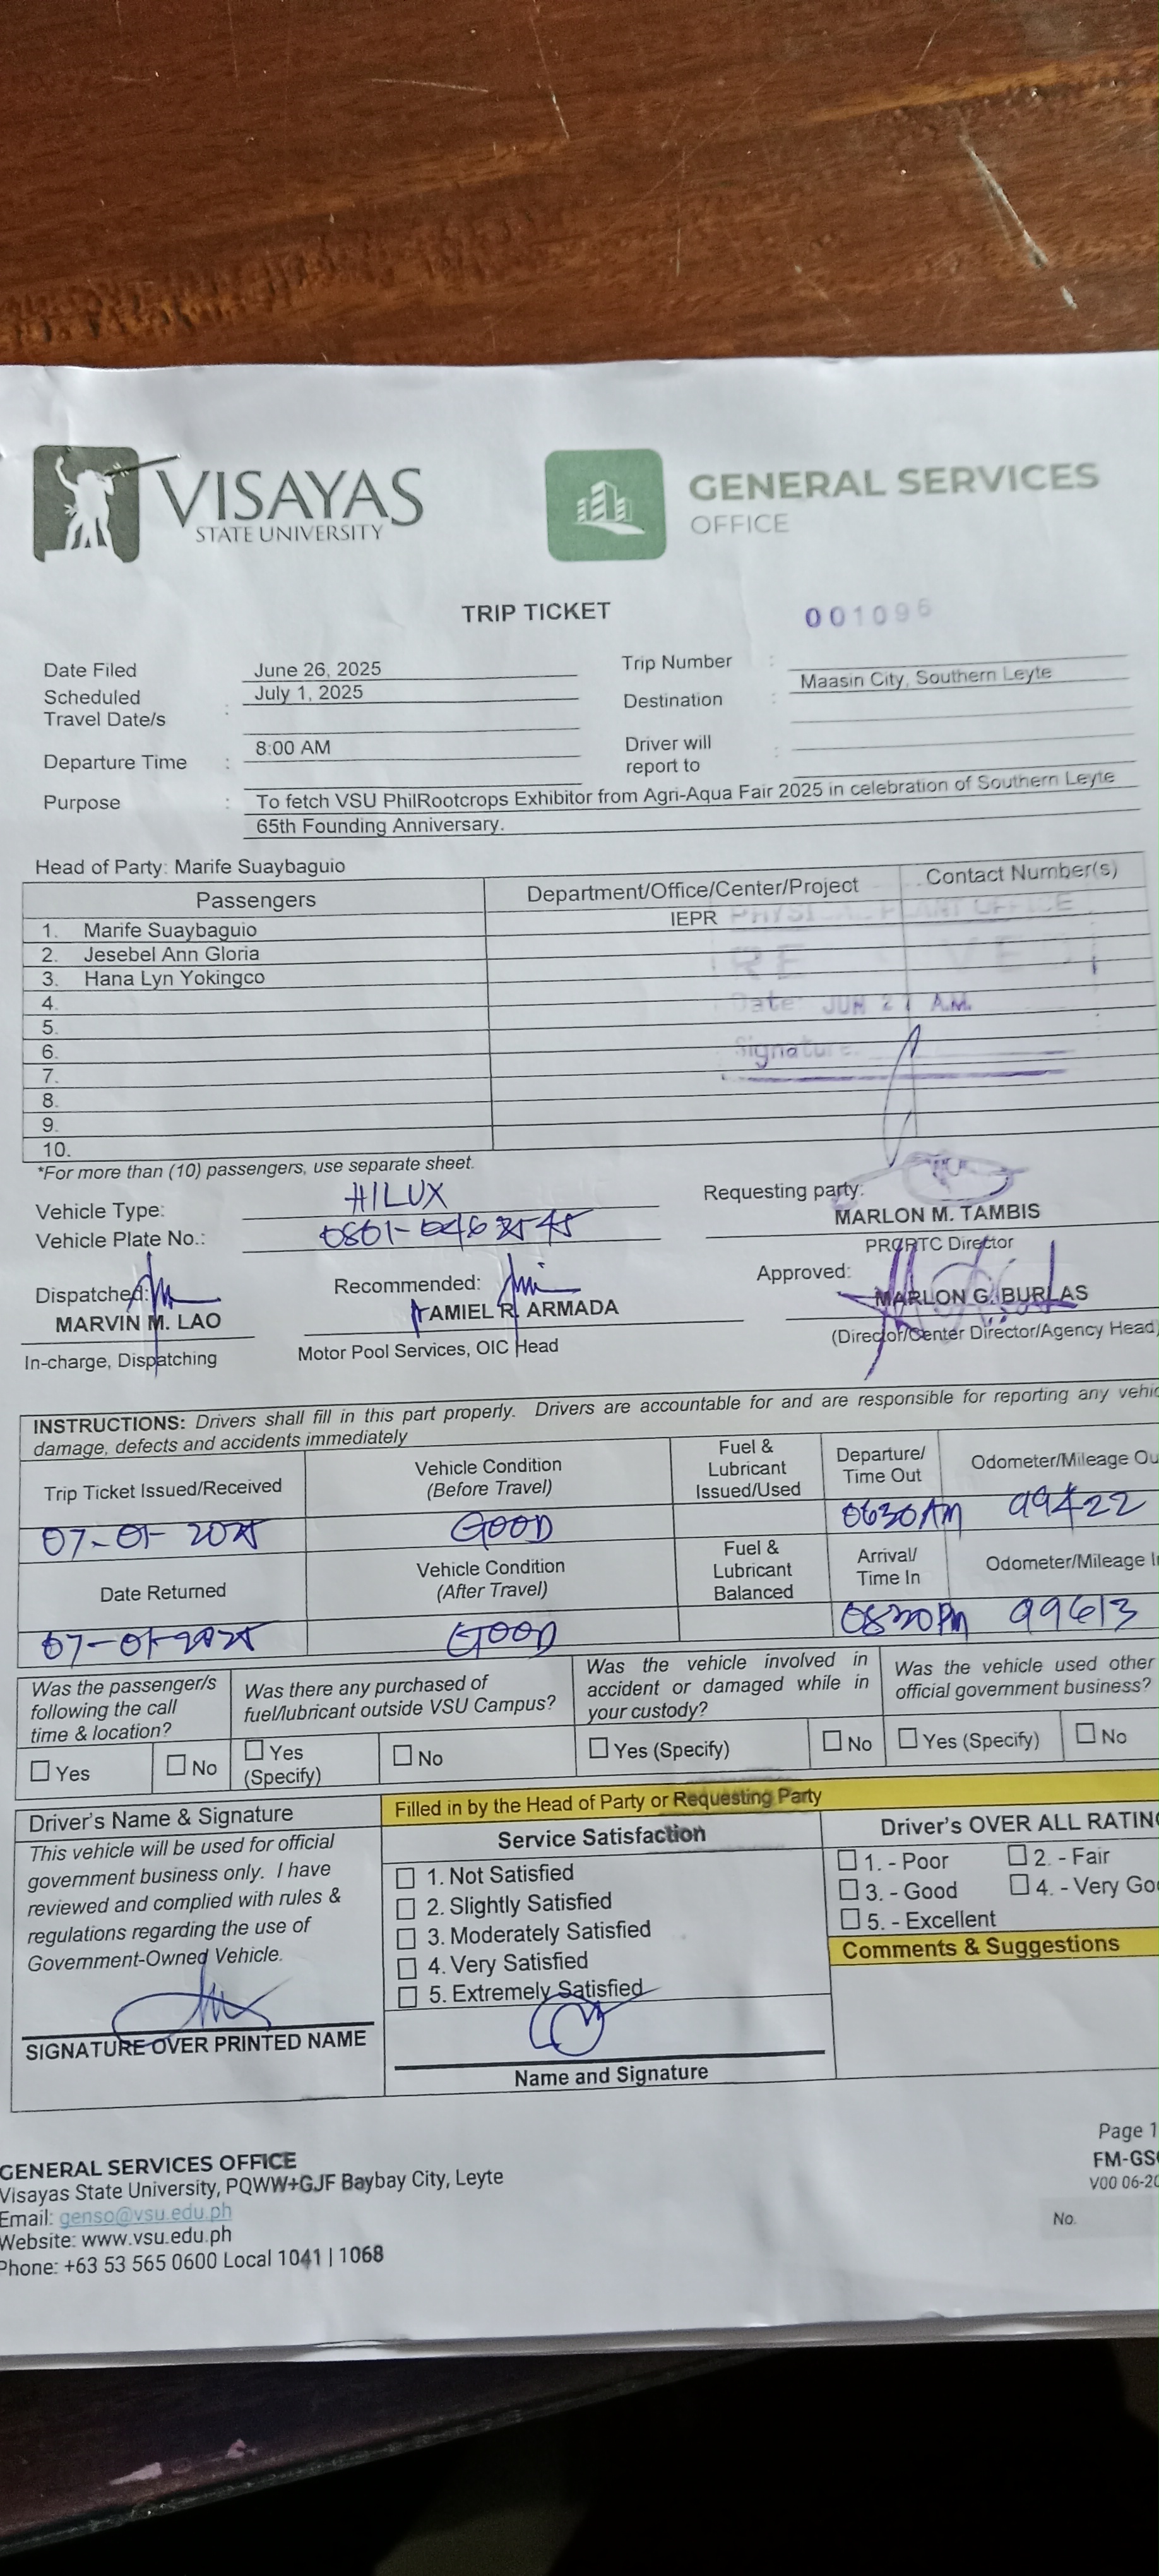 VISAYAS
STATE UNIVERSITY
GENERAL SERVICES
OFFICE
TRIP TICKET
001096
Date Filed June 26, 2025
Trip Number :
Scheduled Travel Date/s : July 1, 2025
Destination : Maasin City, Southern Leyte
Departure Time : 8:00 AM
Driver will report to :
Purpose : To fetch VSU PhilRootcrops Exhibitor from Agri-Aqua Fair 2025 in celebration of Southern Leyte
65th Founding Anniversary.
Head of Party: Marife Suaybaguio
Passengers Department/Office/Center/Project Contact Number(s)
1. Marife Suaybaguio IEPR
2. Jesebel Ann Gloria
3. Hana Lyn Yokingco
4.
5.
6.
7.
8.
9.
10.
PHYSICAL PLANT OFFICE
RE VED
Date: JUN 27 A.M.
Signature:
*For more than (10) passengers, use separate sheet.
Vehicle Type: HILUX
Vehicle Plate No.:
Requesting party:
MARLON M. TAMBIS
PRCRTC Director
Dispatched:
MARVIN M. LAO
In-charge, Dispatching
Recommended:
TAMIEL R. ARMADA
Motor Pool Services, OIC Head
Approved:
MARLON G. BURLAS
(Director/Center Director/Agency Head)
INSTRUCTIONS: Drivers shall fill in this part properly. Drivers are accountable for and are responsible for reporting any vehic
damage, defects and accidents immediately
Trip Ticket Issued/Received
Vehicle Condition
(Before Travel)
Fuel &
Lubricant
Issued/Used
Departure/
Time Out
Odometer/Mileage Ou
07-01-2025 GOOD 0630AM 99422
Date Returned
Vehicle Condition
(After Travel)
Fuel &
Lubricant
Balanced
Arrival/
Time In
Odometer/Mileage I
07-01-2025 GOOD 99613
Was the passenger/s
following the call
time & location?
Was there any purchased of
fuel/lubricant outside VSU Campus?
Was the vehicle involved in
accident or damaged while in
your custody?
Was the vehicle used other
official government business?
Yes
No
Yes
(Specify)
No
Yes (Specify)
No
Yes (Specify)
No
Driver's Name & Signature
This vehicle will be used for official
government business only. I have
reviewed and complied with rules &
regulations regarding the use of
Government-Owned Vehicle.
SIGNATURE OVER PRINTED NAME
Filled in by the Head of Party or Requesting Party
Service Satisfaction
1. Not Satisfied
2. Slightly Satisfied
3. Moderately Satisfied
4. Very Satisfied
5. Extremely Satisfied
Name and Signature
Driver's OVER ALL RATING
1. - Poor
2. - Fair
3. - Good
4. - Very Go
5. - Excellent
Comments & Suggestions
GENERAL SERVICES OFFICE
Visayas State University, PQWW+GJF Baybay City, Leyte
Email: genso@vsu.edu.ph
Website: www.vsu.edu.ph
Phone: +63 53 565 0600 Local 1041 | 1068
Page 1
FM-GS
V00 06-20
No.